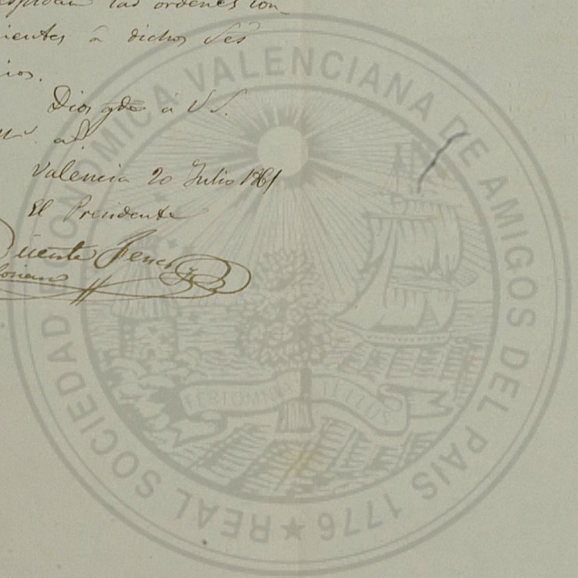 las ordenes con-
ientes á dichos Señ
ios.
Dios gde á V.S.
m. a.
Valencia 20 Julio 1861
El Presidente
Vicente
REAL SOCIEDAD ECONOMICA VALENCIANA DE AMIGOS DEL PAIS 1776
FERT OMNIA TELLUS